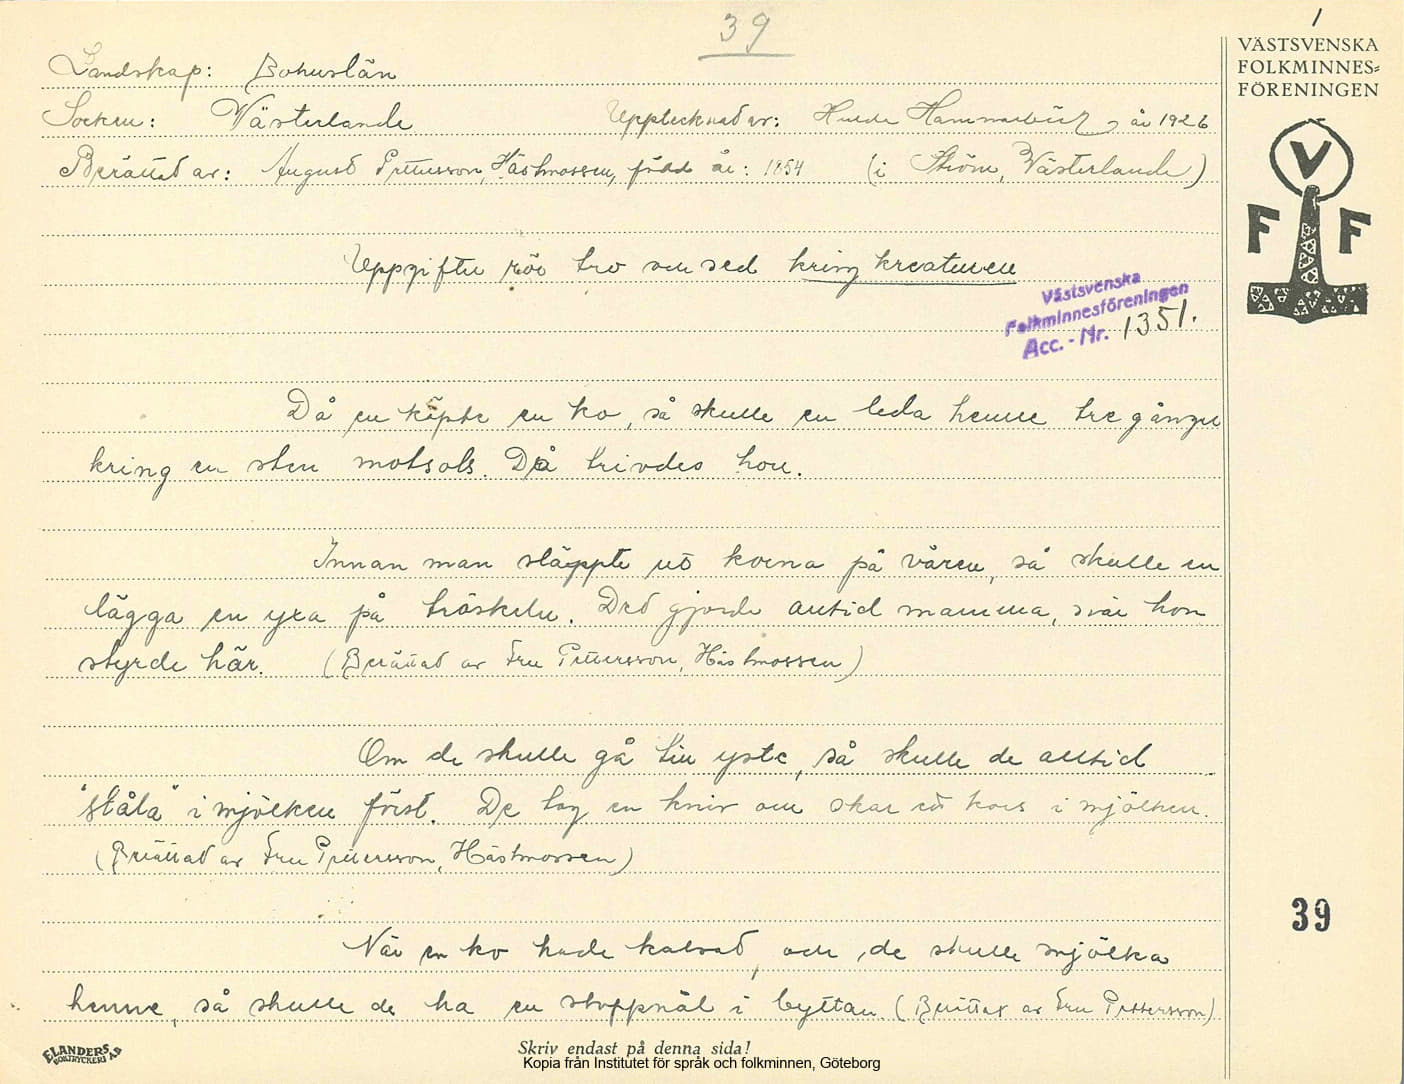 39
1
VÄSTSVENSKA
FOLKMINNES=
FÖRENINGEN
V
F F
Landskap: Bohuslän
Socken: Västerlanda Upptecknad av: Hulda Hammarbäck, år 1926
Berättad av: August Pettersson, Hästmossen, född år: 1854 (i Ström, Västerlanda)
Uppgifter rör tro och sed kring kreaturen
Västsvenska
Folkminnesföreningen
Acc. - Nr. 1351.
Då en köpte en ko, så skulle en leda henne tre gånger
kring en sten motsols. Då trivdes hon.
Innan man släppte ut korna på våren, så skulle en
lägga en yxa på tröskeln. Det gjorde alltid mamma, när hon
styrde här. (Berättad av Fru Pettersson, Hästmossen)
Om de skulle gå till yste, så skulle de alltid
"ståla" i mjölken först. De tog en kniv och skar ett kors i mjölken.
(Berättad av Fru Pettersson, Hästmossen)
När en ko hade kalvat, och de skulle mjölka
henne, så skulle de ha en stoppnål i byttan. (Berättat av Fru Pettersson)
39
ELANDERS
BOKTRYCKERI AB
Skriv endast på denna sida!
Kopia från Institutet för språk och folkminnen, Göteborg